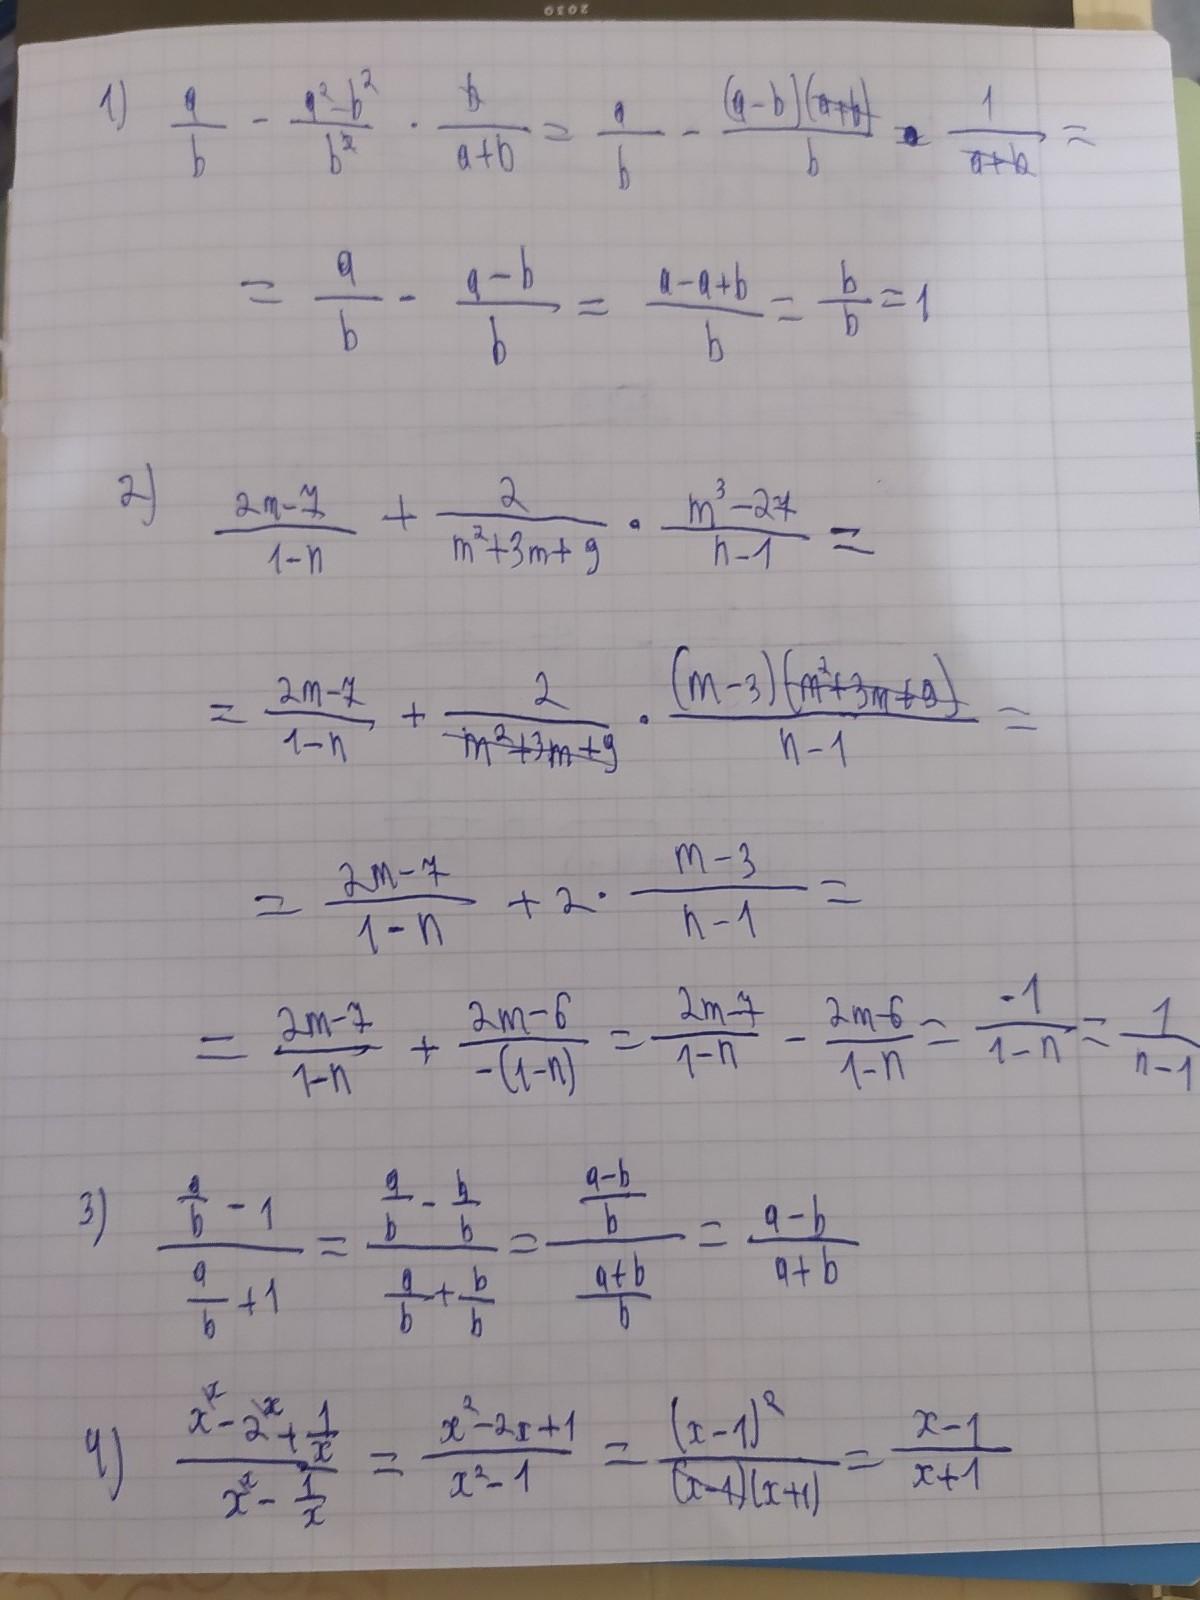 2030
1) a/b - (a²-b²)/b² · b/(a+b) = a/b - (a-b)(a+b)/b · 1/(a+b) =
= a/b - (a-b)/b = (a-a+b)/b = b/b = 1
2) (2m-7)/(1-n) + 2/(m²+3m+9) · (m³-27)/(n-1) =
= (2m-7)/(1-n) + 2/(m²+3m+9) · (m-3)(m²+3m+9)/(n-1) =
= (2m-7)/(1-n) + 2 · (m-3)/(n-1) =
= (2m-7)/(1-n) + (2m-6)/(-(1-n)) = (2m-7)/(1-n) - (2m-6)/(1-n) = -1/(1-n) = 1/(n-1)
3) (a/b - 1)/(a/b + 1) = (a/b - b/b)/(a/b + b/b) = ((a-b)/b)/((a+b)/b) = (a-b)/(a+b)
4) (x^x - 2^x + 1/x)/(x^x - 1/x) = (x²-2x+1)/(x²-1) = (x-1)²/((x-1)(x+1)) = (x-1)/(x+1)